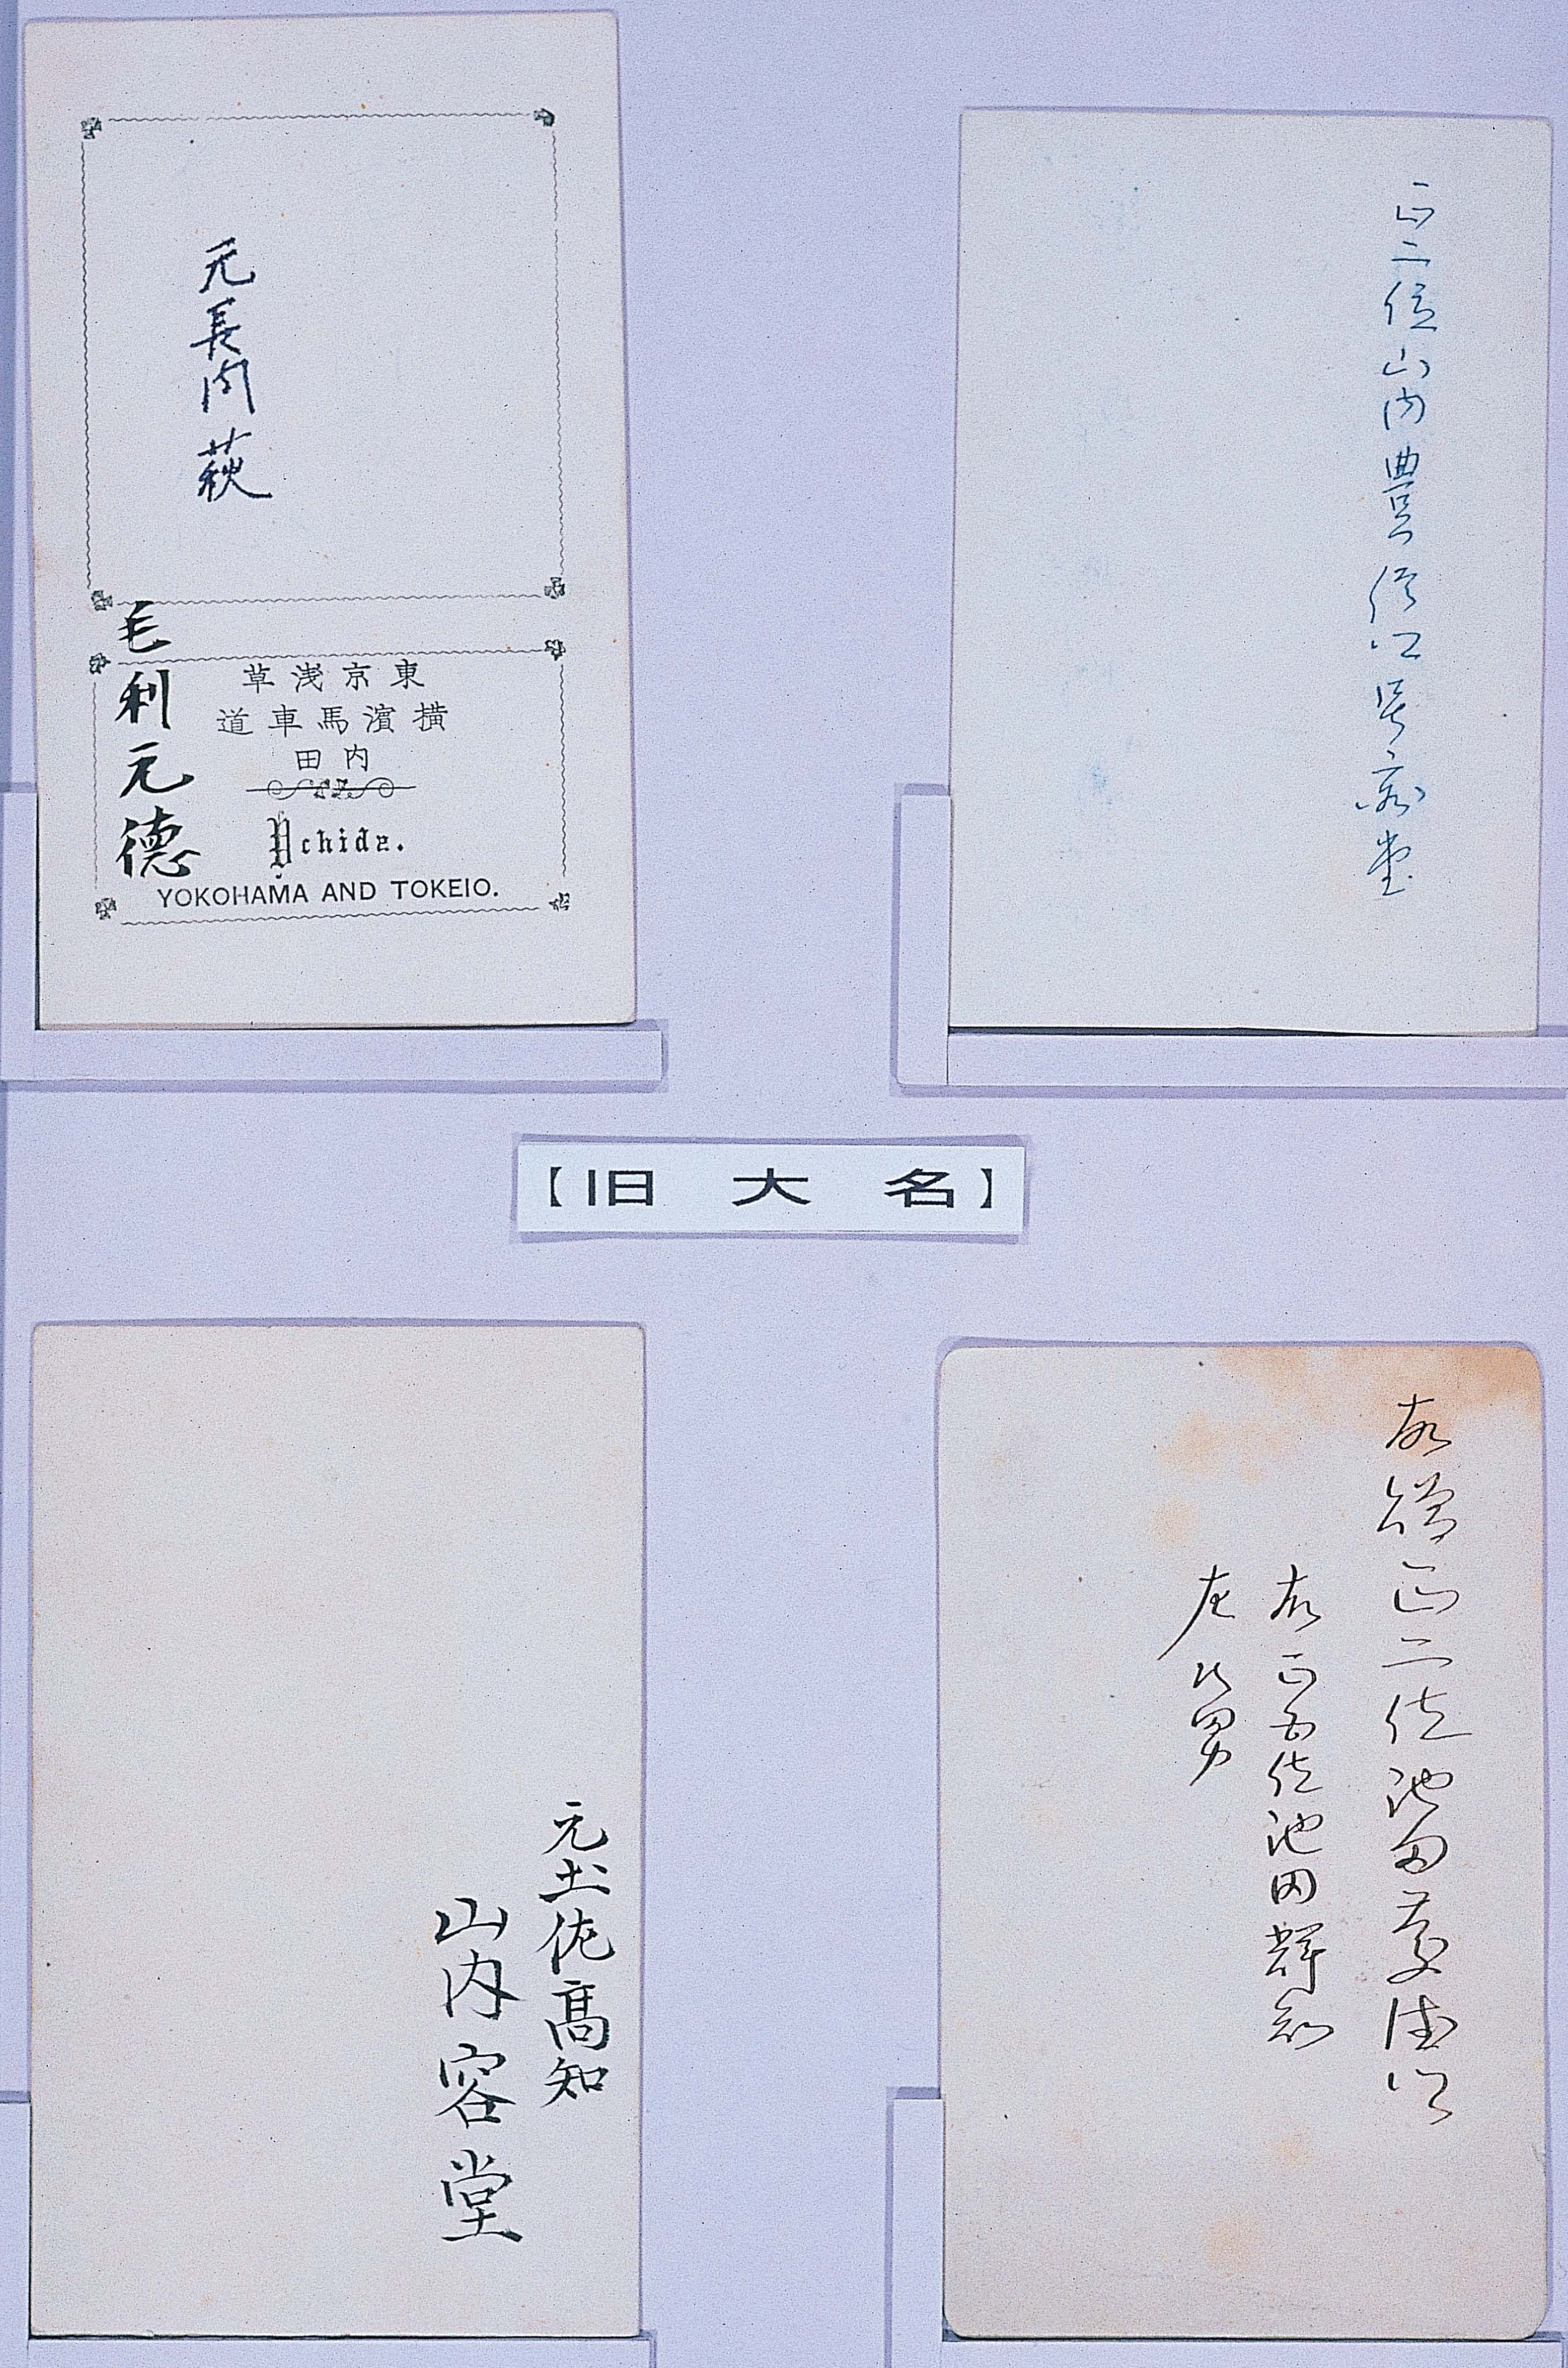 元長門萩
毛利元徳
東京浅草
横濱馬車道
内田
Uchida.
YOKOHAMA AND TOKEIO.
正二位山内豊信公号容堂
【旧 大 名】
元土佐髙知
山内容堂
故贈正二位池田慶徳公
故正五位池田輝知
左次男